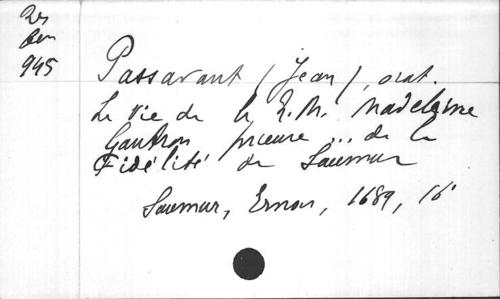 945
Passavant (Jean), orat.
La Vie de la R.M. Madeleine
Gautron prieure ... de la
Fidélité de Saumur
Saumur, Ernou, 1689, 16°